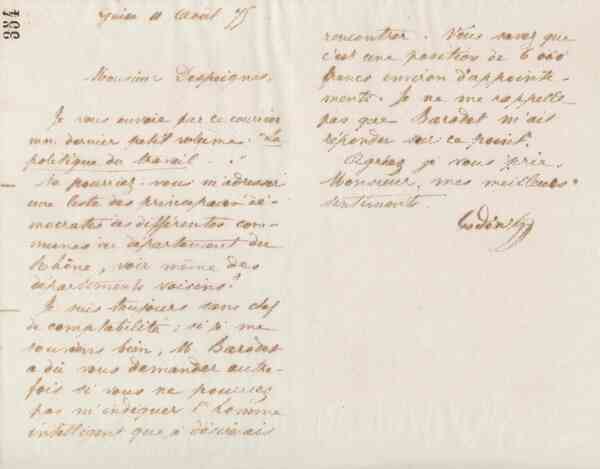 334
Guise 11 Août 75
Monsieur Despeignes,
Je vous envoie par ce courrier
mon dernier petit volume : "La
politique du travail . "
Ne pourriez-vous m'adresser
une liste des principaux dé-
mocrates des différentes com-
munes du département du
Rhône, voir même des
départements voisins ?
Je suis toujours sans chef
de comptabilité ; si je me
souviens bien, M Barodet
a dû vous demander autre-
fois si vous ne pourriez
pas m'indiquer l'homme
intelligent que je désirais
rencontrer. Vous savez que
c'est une position de 6 000
francs environ d'appointe-
ments. Je ne me rappelle
pas que Barodet m'ait
répondu sur ce point.
Agréez je vous prie,
Monsieur, mes meilleurs
sentiments.
Godin